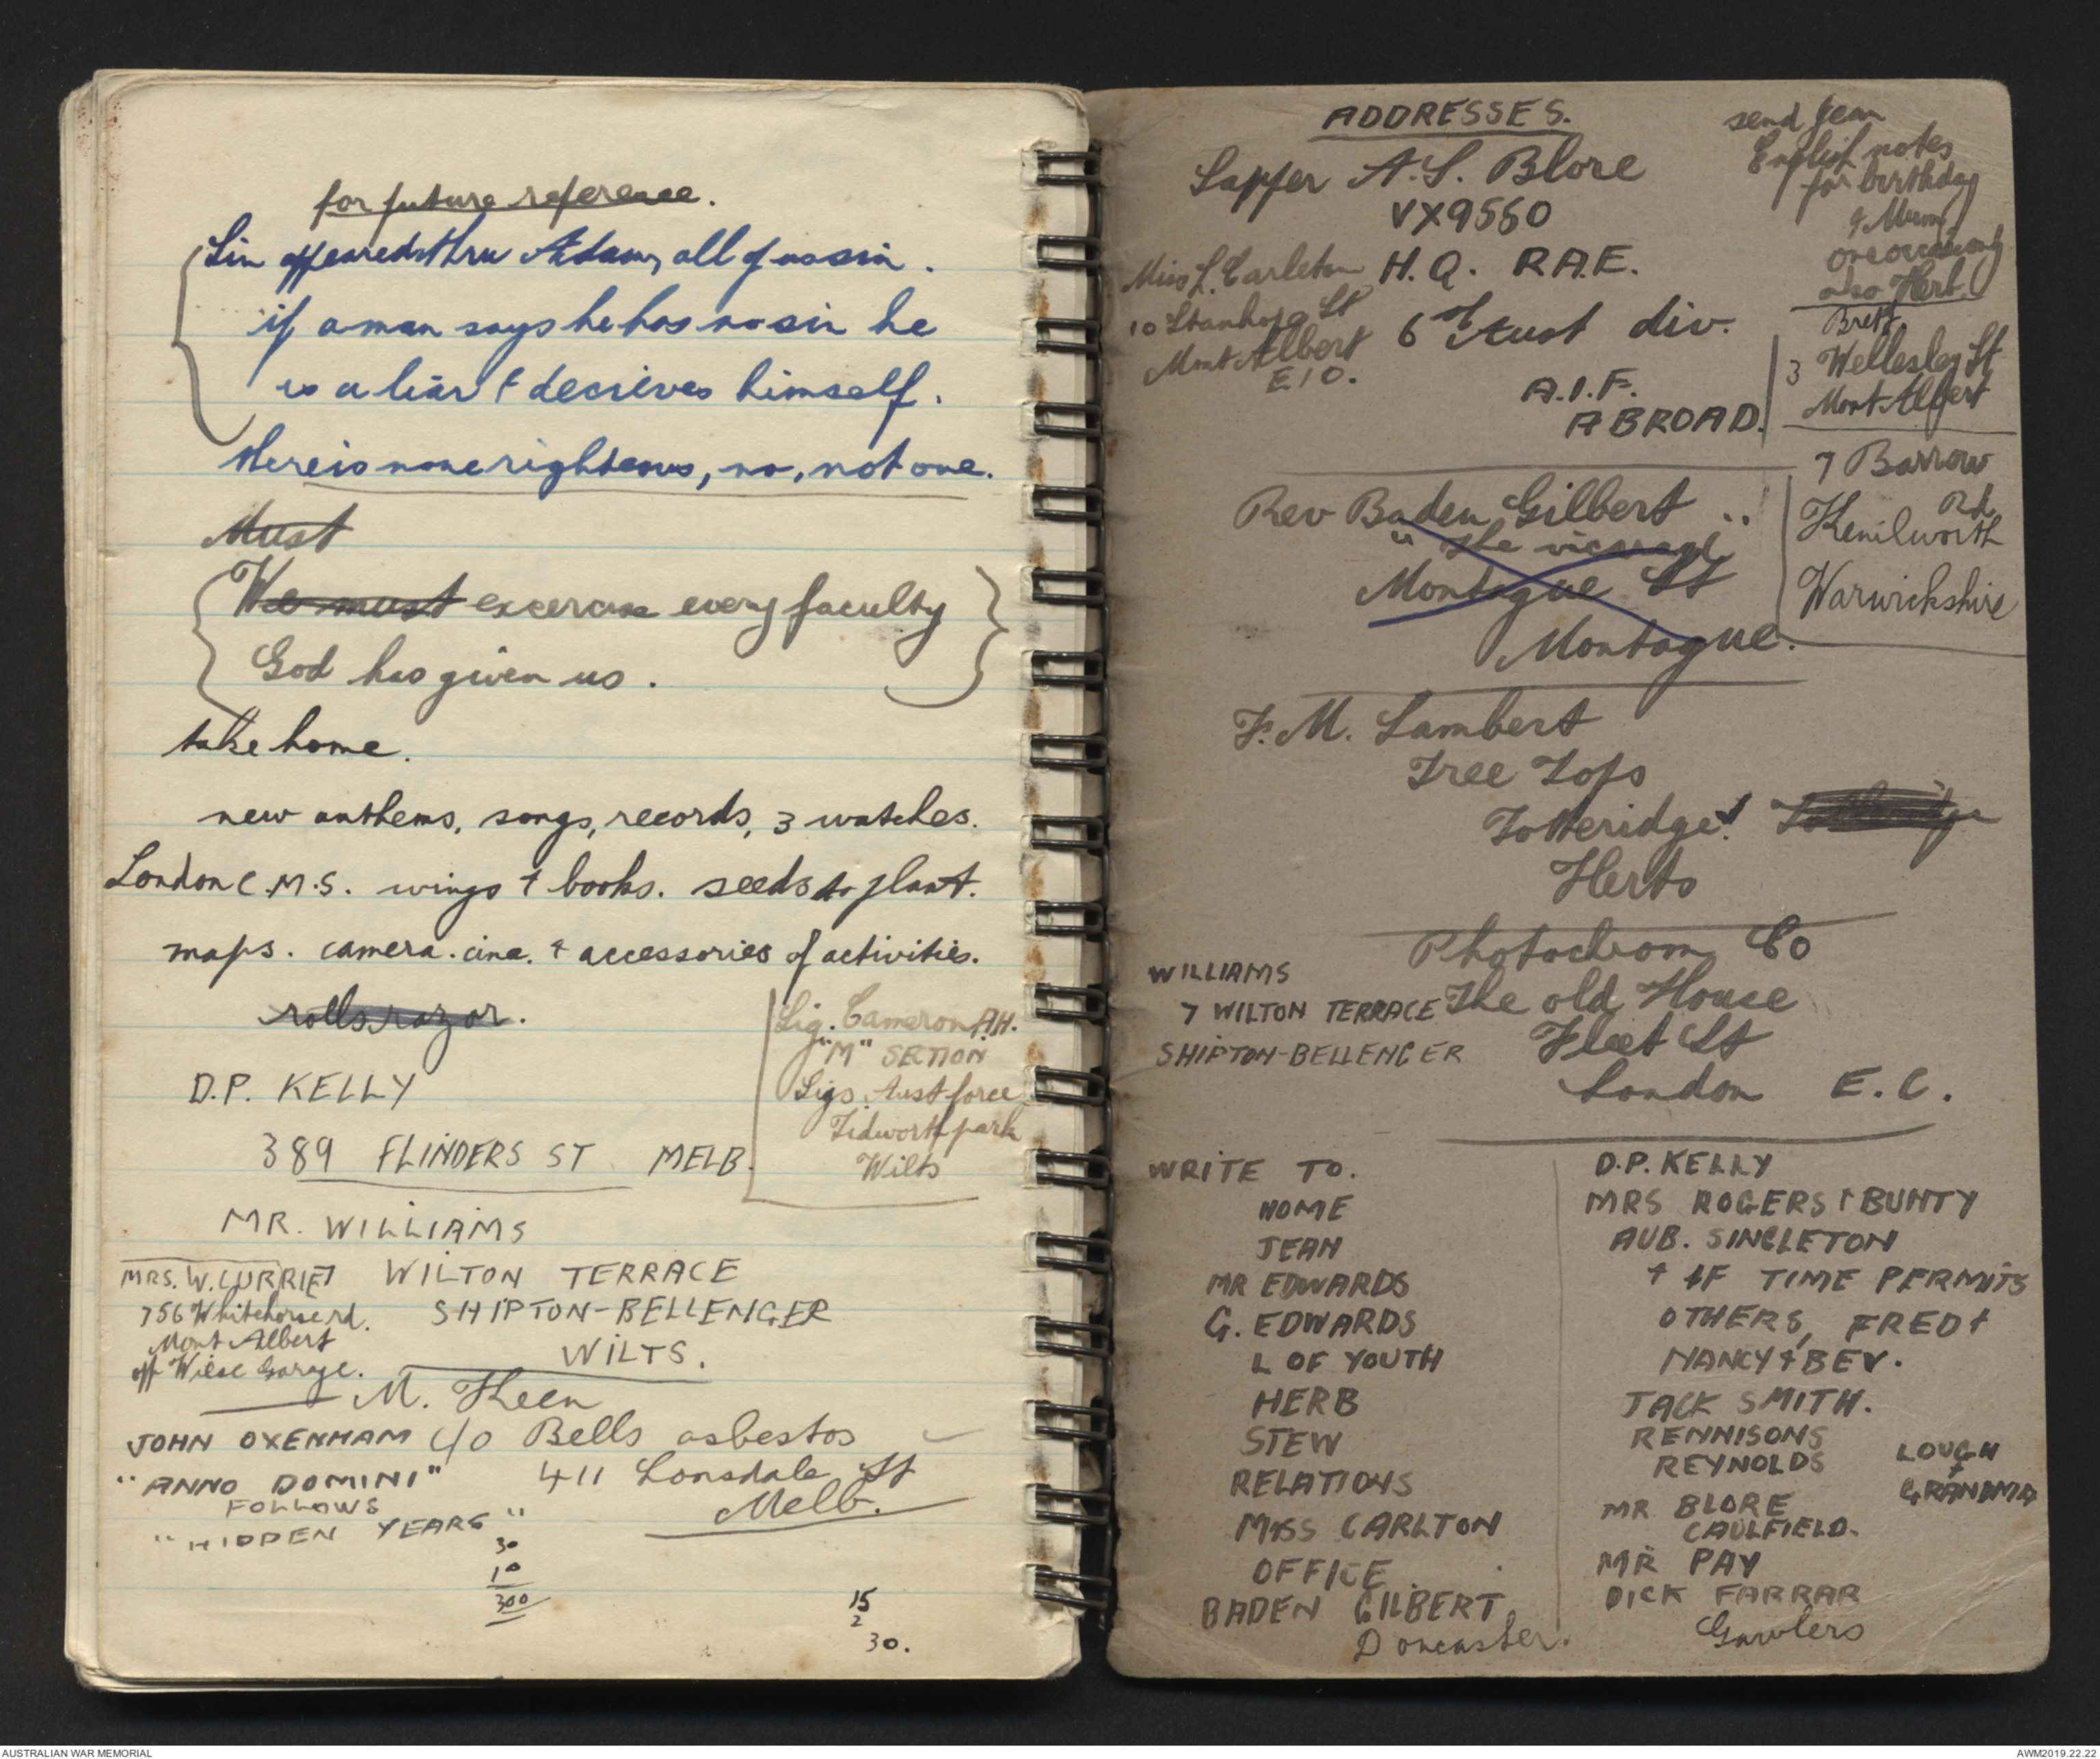 for future reference.
Sin appeared thru Adam, all of us sin.
if a man says he has no sin he
is a liar & decieves himself.
there is none righteous, no, not one.
Must
We must excercise every faculty
God has given us.
take home.
new anthems, songs, records, 3 watches.
London C.M.S. wings & books. seeds to plant.
maps. camera. cine. & accessories of activities.
rolls razor.
Sig. Cameron A.H.
"M" SECTION
Sigs. Aust force
Tidworth park
Wilts
D.P. KELLY
389 FLINDERS ST MELB.
MR. WILLIAMS
7 WILTON TERRACE
SHIPTON-BELLENGER
WILTS.
MRS. W. CURRIE
756 Whitehorse rd.
Mont Albert
opp Wiese Garage.
M. Keen
c/o Bells asbestos
411 Lonsdale St
Melb.
JOHN OXENHAM
"ANNO DOMINI"
FOLLOWS
"HIDDEN YEARS"
30
10
300
15
2
30.
ADDRESSES.
Sapper A.S. Blore
VX9560
H.Q. R.A.E.
6th Aust div.
A.I.F.
ABROAD.
send Jean
English notes
for birthday
& Mum
one occasionally
also Herb.
Miss L. Carleton
10 Stanhope St
Mont Albert
E10.
Brett
3 Wellesley St
Mont Albert
7 Barrow
Rd
Kenilworth
Warwickshire
Rev Baden Gilbert
"the vicarage
Montague St
Montague.
F. M. Lambert
Tree Tops
Totteridge
Herts
Photochrom Co
The old House
Fleet St
London E.C.
WILLIAMS
7 WILTON TERRACE
SHIPTON-BELLENGER
WRITE TO.
HOME
JEAN
MR EDWARDS
G. EDWARDS
L OF YOUTH
HERB
STEW
RELATIONS
MISS CARLTON
OFFICE
BADEN GILBERT
Doncaster.
D.P. KELLY
MRS ROGERS & BUNTY
AUB. SINGLETON
& IF TIME PERMITS
OTHERS, FRED &
NANCY & BEV.
JACK SMITH.
RENNISONS
REYNOLDS
LOUGH
&
GRANDMA
MR BLORE
CAULFIELD.
MR PAY
DICK FARRAR
Gawlers
AUSTRALIAN WAR MEMORIAL
AWM2019.22.22